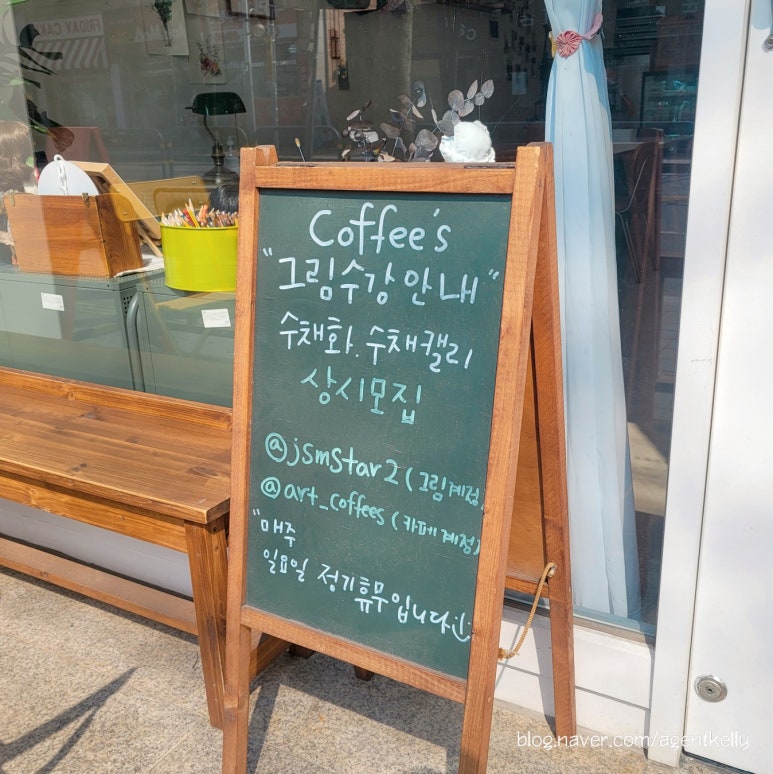 Coffee's
"그림수강 안내"
수채화. 수채캘리
상시모집
@jsmstar2 (그림계정)
@art_coffees (카페계정)
"매주
일요일 정기휴무입니다 :)
blog.naver.com/agentkelly